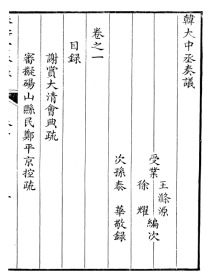 韓大中丞奏議
受業
王滌源
徐燿
編次
次孫泰華敬録
卷之一
目録
謝賞大清會典疏
審擬碭山縣民鄭平京控疏